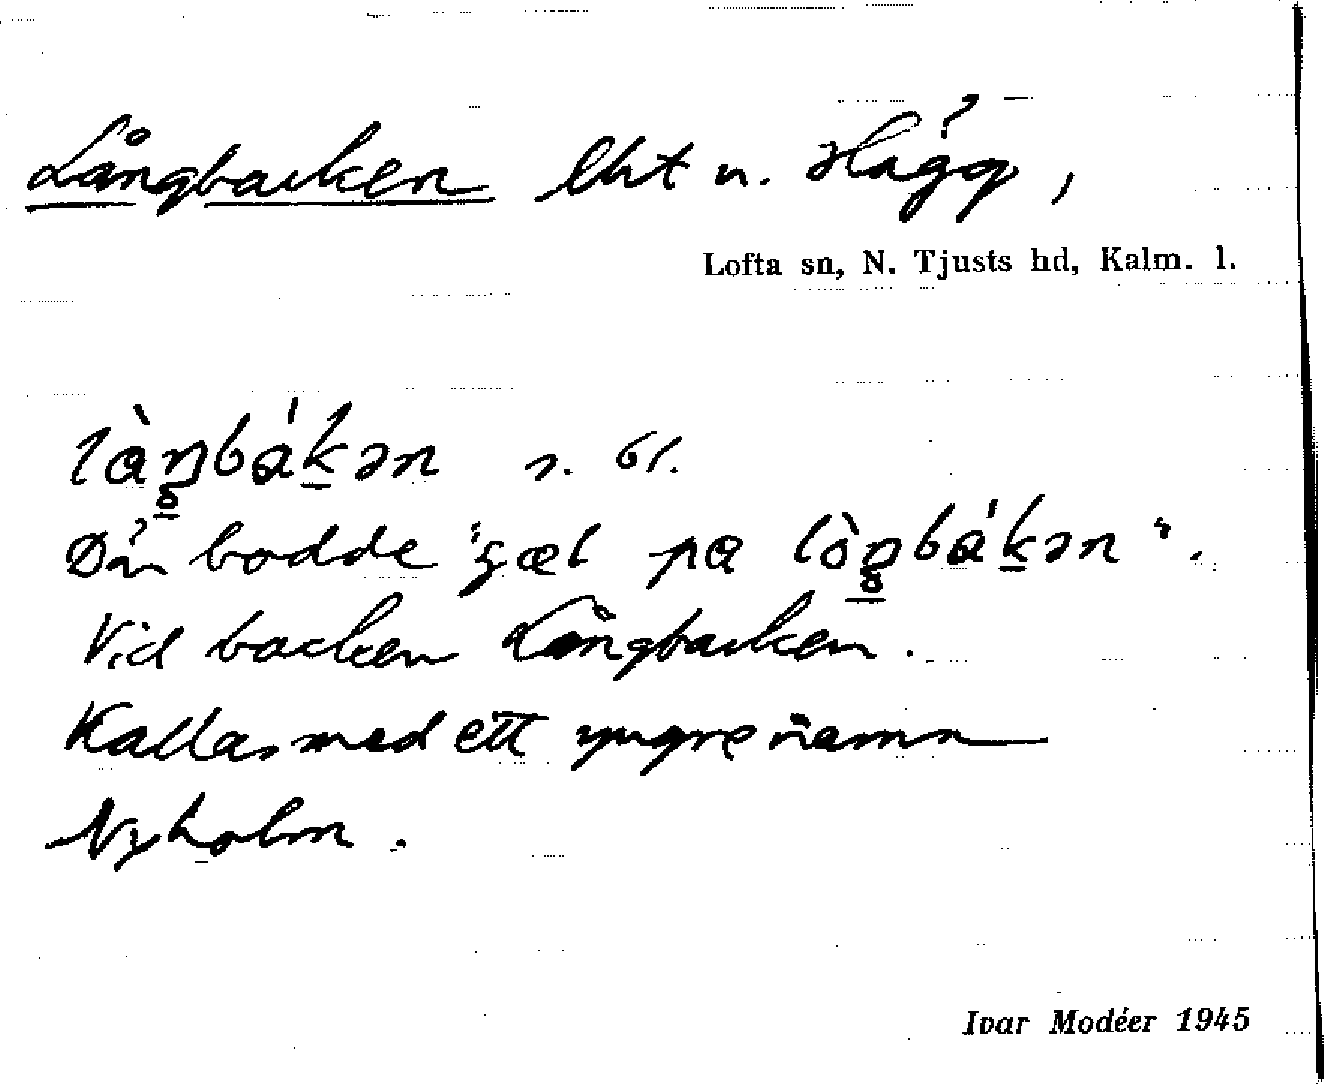 Långbacken lht u. Hägg,
Lofta sn, N. Tjusts hd, Kalm. l.
làŋbákən
bodde på lòŋbákən".
Vid backen Långbacken.
Kallas med ett yngre namn
Nyholm.
Ivar Modéer 1945